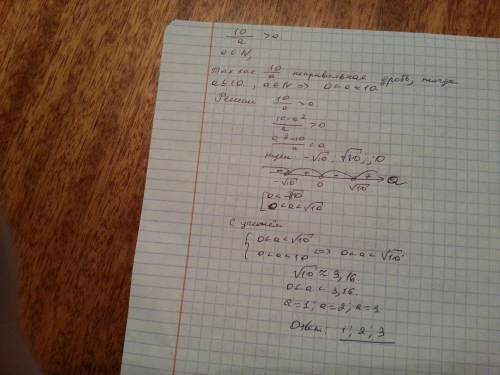 10/a > a
a ∈ N,
Так как 10/a неправильная дробь, тогда
a ≤ 10, a ∈ N => 0 < a ≤ 10.
Решим 10/a > a
(10-a²)/a > 0
(a²-10)/a < 0
нули: -√10; √10; 0
- + - + a
-√10 0 √10
[ a < -√10
0 < a < √10
С учётом
{ 0 < a < √10
0 < a ≤ 10 <=> 0 < a < √10.
√10 ≈ 3,16.
0 < a < 3,16.
a = 1; a = 2; a = 3
Ответ: 1; 2; 3